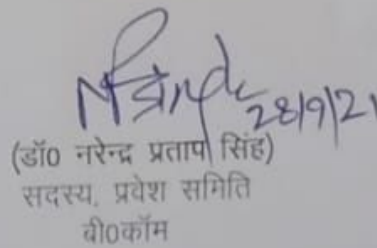 28/9/21
(डॉ0 नरेन्द्र प्रताप सिंह)
सदस्य, प्रवेश समिति
बी0कॉम